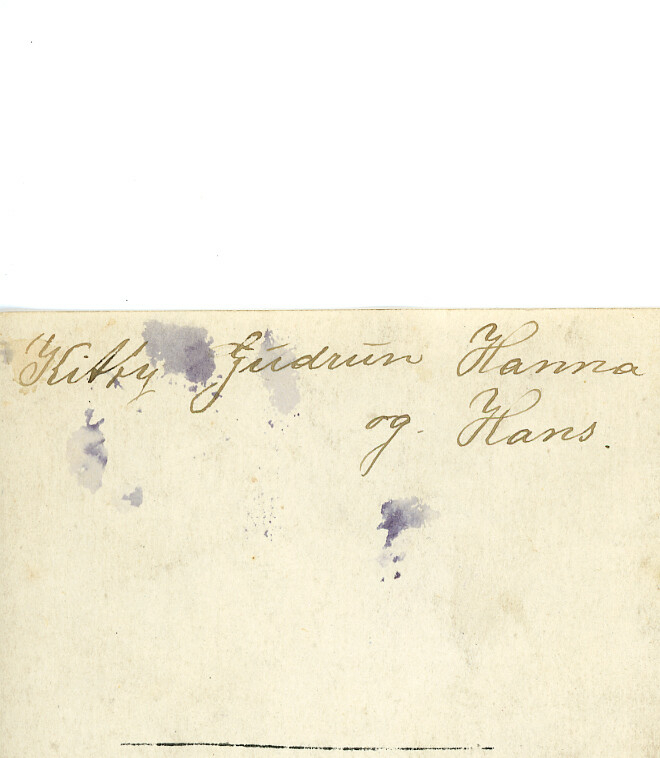 Kitty Gudrun Hanna
og. Hans.